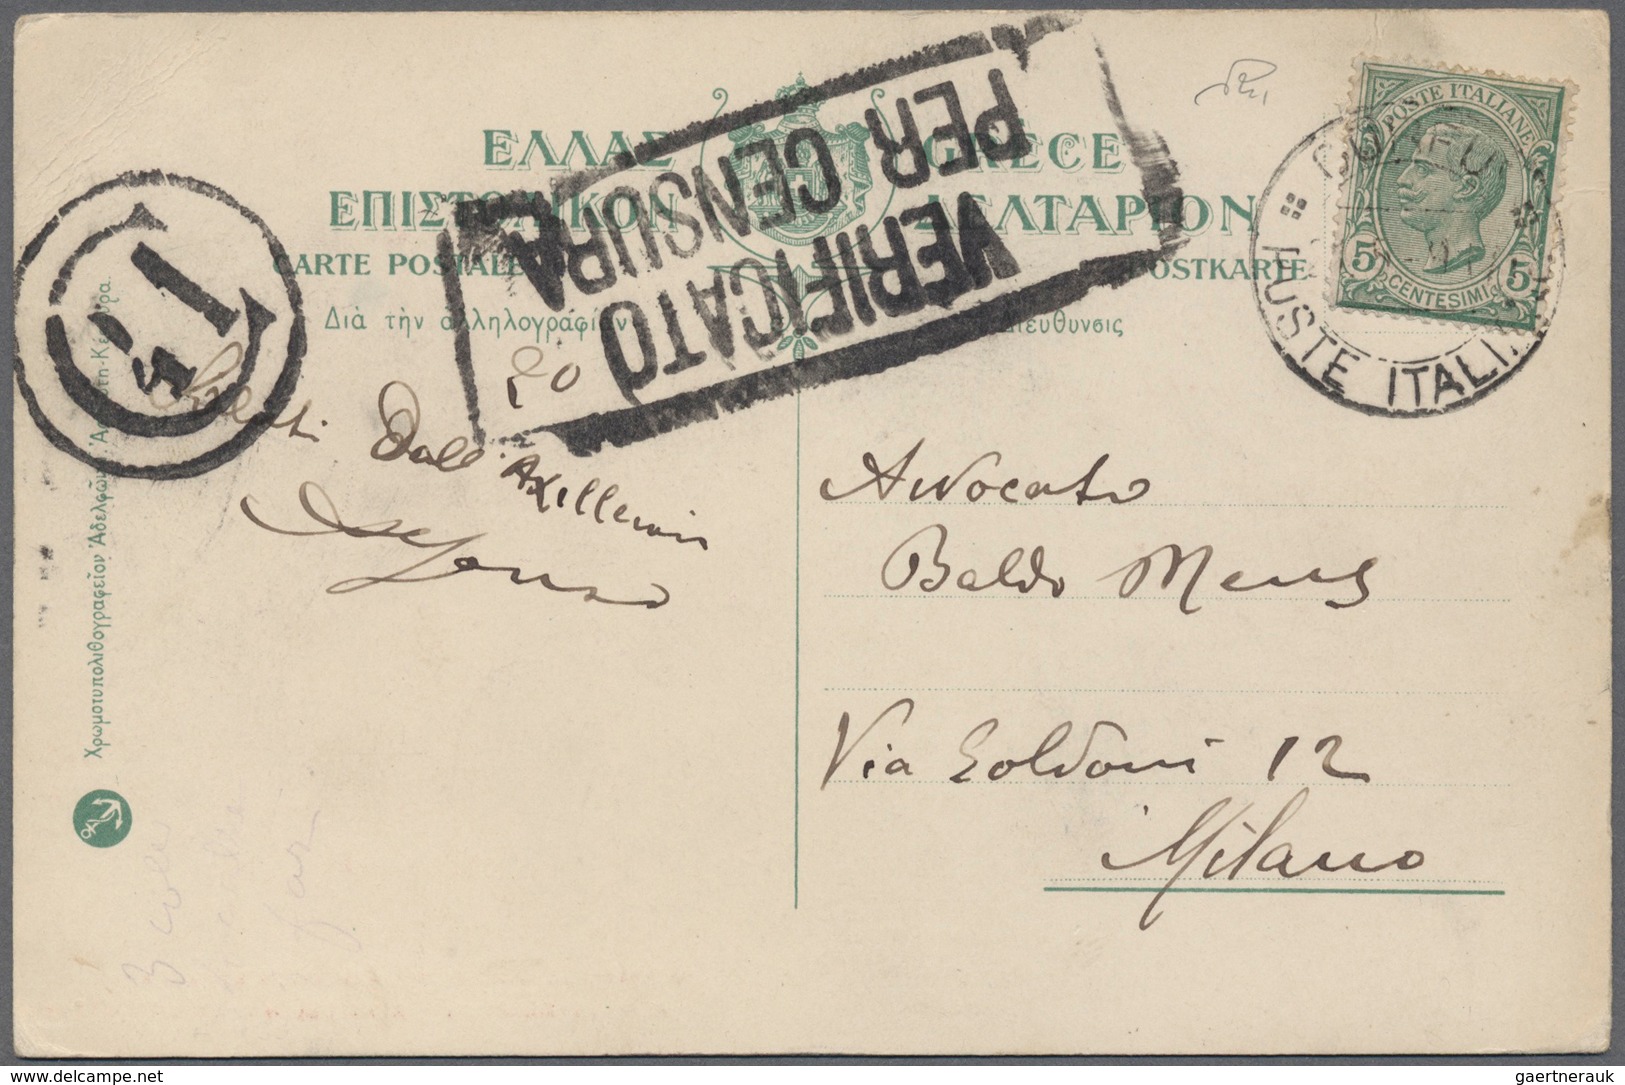 ΕΛΛΑΣ GRÈCE
ΕΠΙΣΤΟΛΙΚΟΝ ΔΕΛΤΑΡΙΟΝ
CARTE POSTALE POSTKARTE
Διὰ τὴν ἀλληλογραφίαν Διεύθυνσις
VERIFICATO
PER CENSURA
POSTE ITALIANE
5 5
CENTESIMI
CORFU
POSTE ITALIANE
20
Dall'Axilleion
Avvocato
Baldo
Via Goldoni 12
Milano
Χρωμοτυπολιθογραφεῖον Ἀδελφῶν
delcampe.net
gaertnerauk